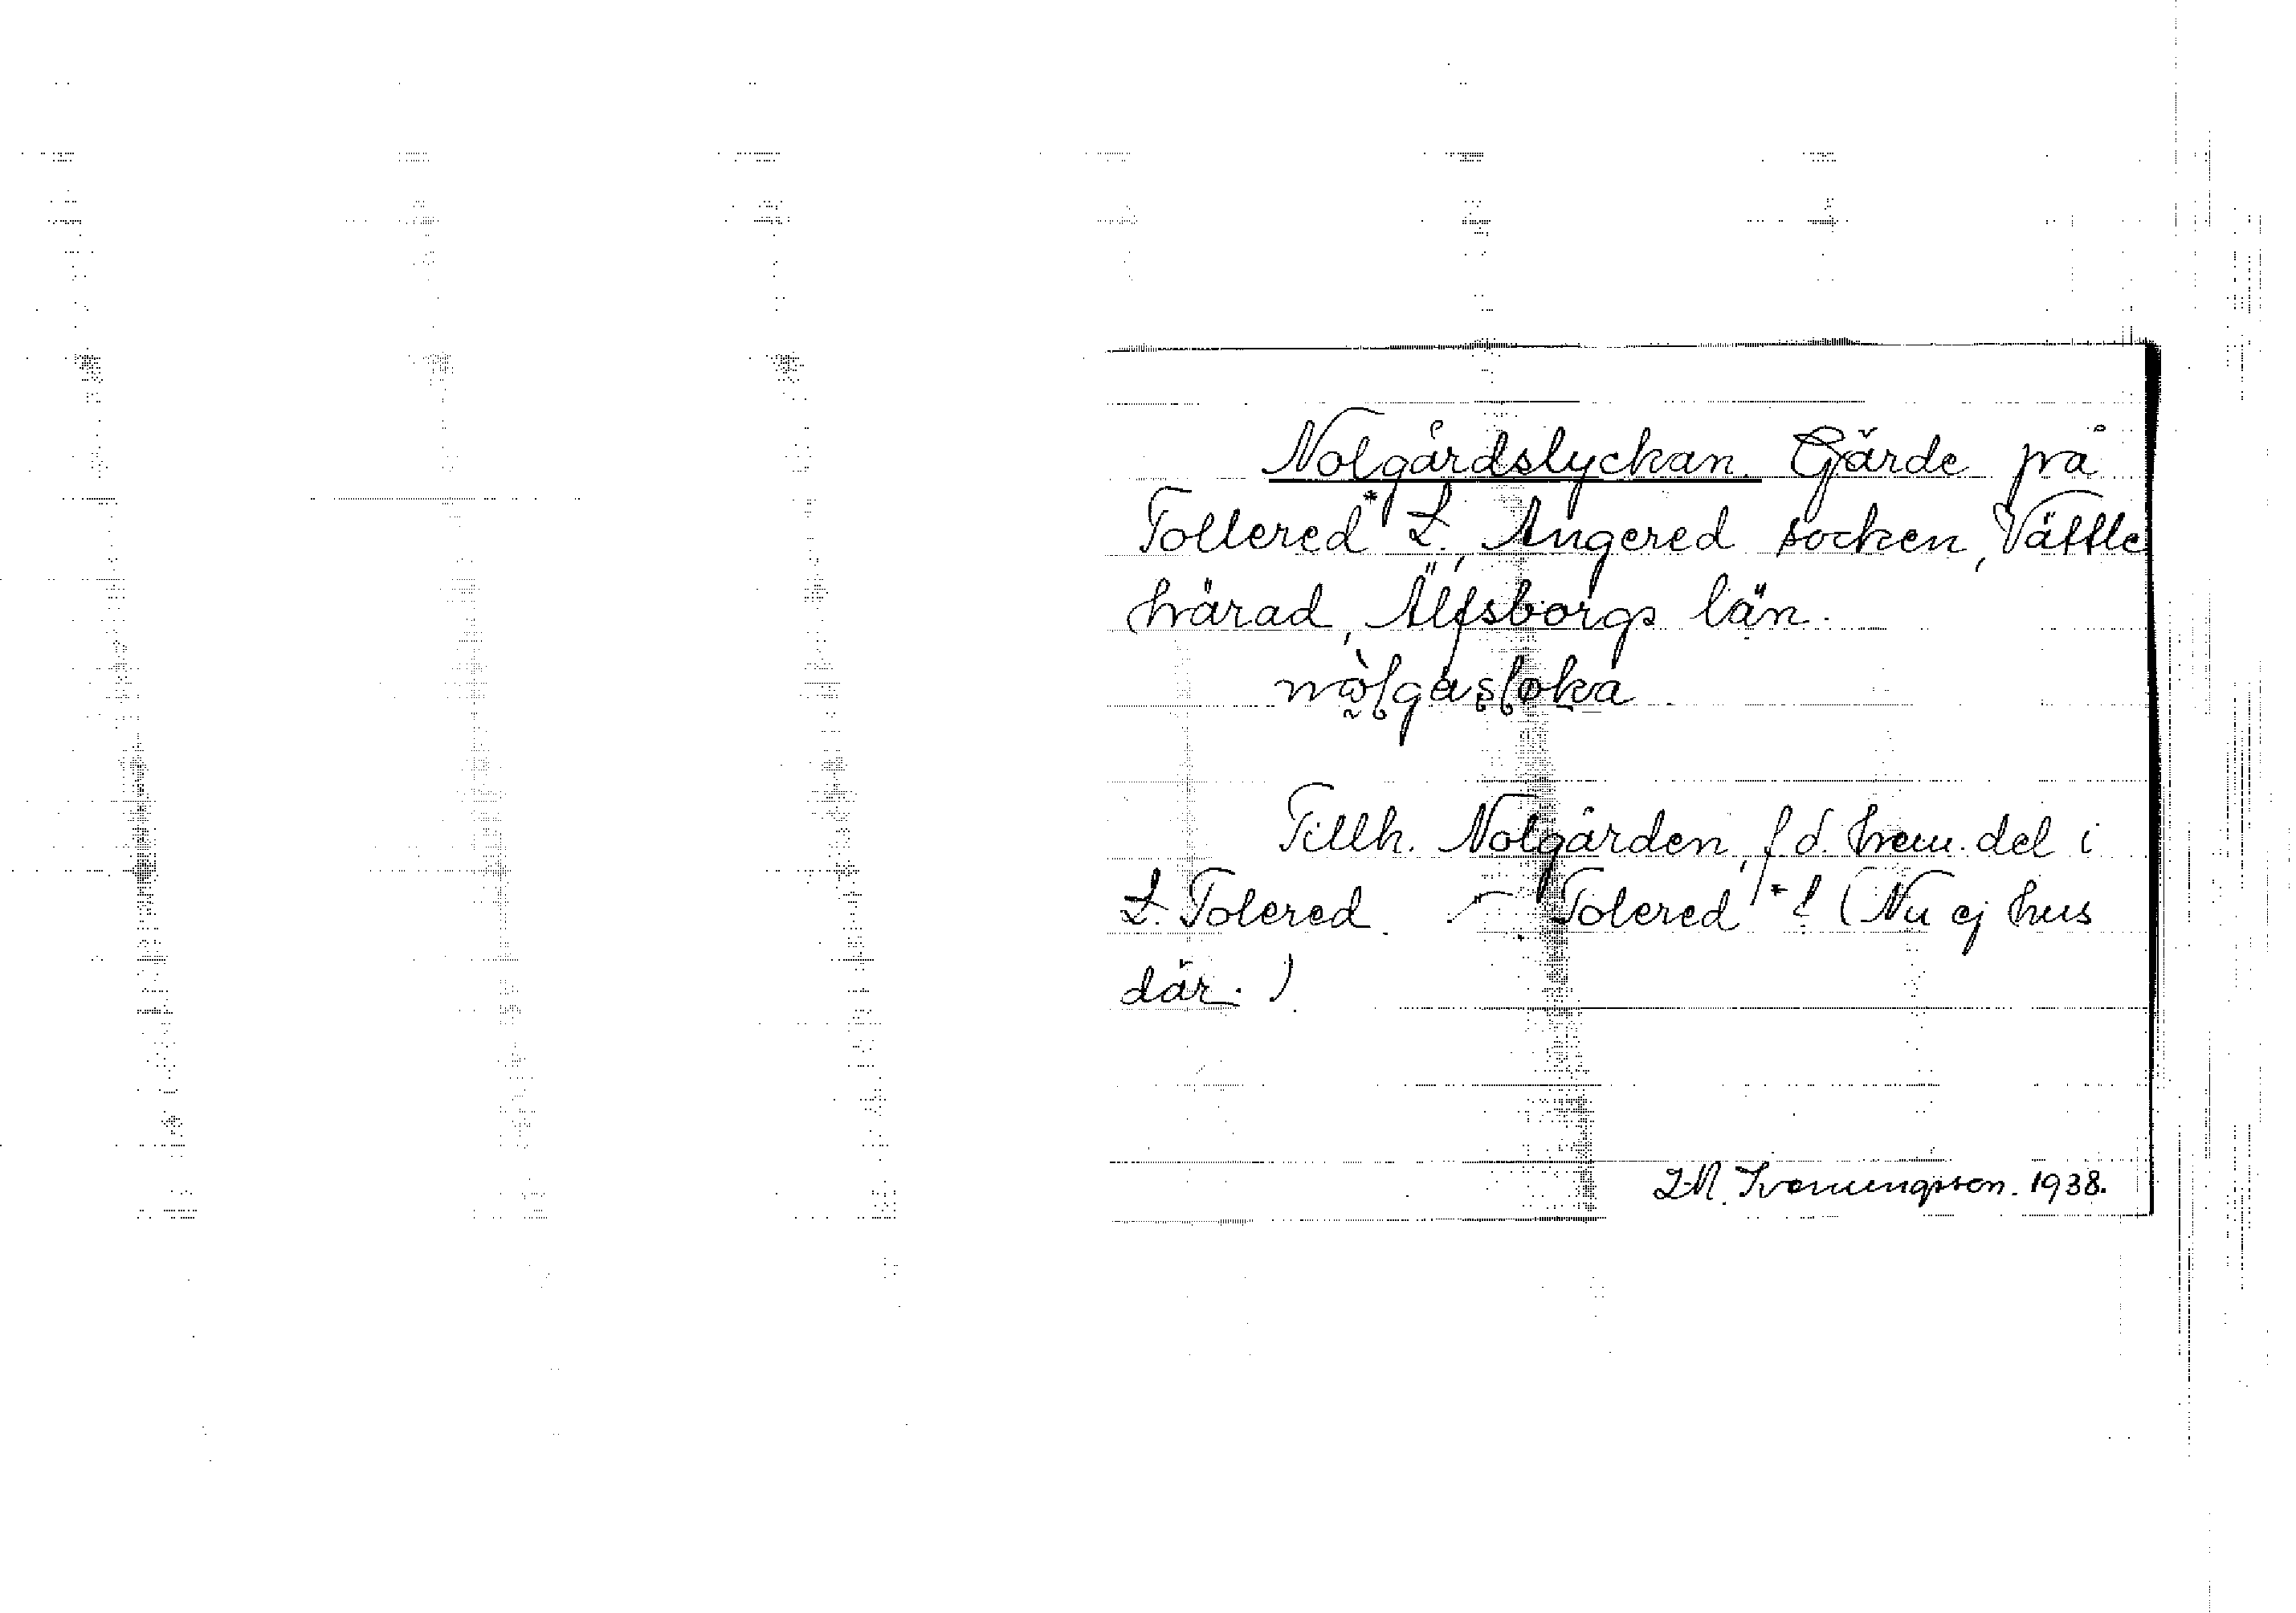 Nolgårdslyckan. Gärde på
Tollered* L., Angered socken, Vättle
härad, Älfsborgs län.
nòlgasloka
Tillh. Nolgården, f.d. hem. del i
L. Tolered. — Tolered*! (Nu ej hus
där.)
1938.